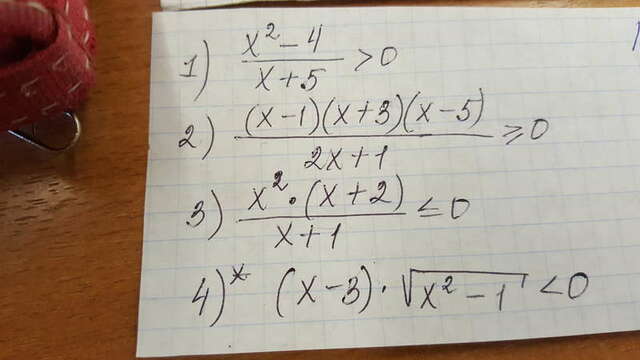 1) (x² - 4)/(x + 5) > 0
2) ((x - 1)(x + 3)(x - 5))/(2x + 1) ≥ 0
3) (x² · (x + 2))/(x + 1) ≤ 0
4)* (x - 3) · √(x² - 1) < 0